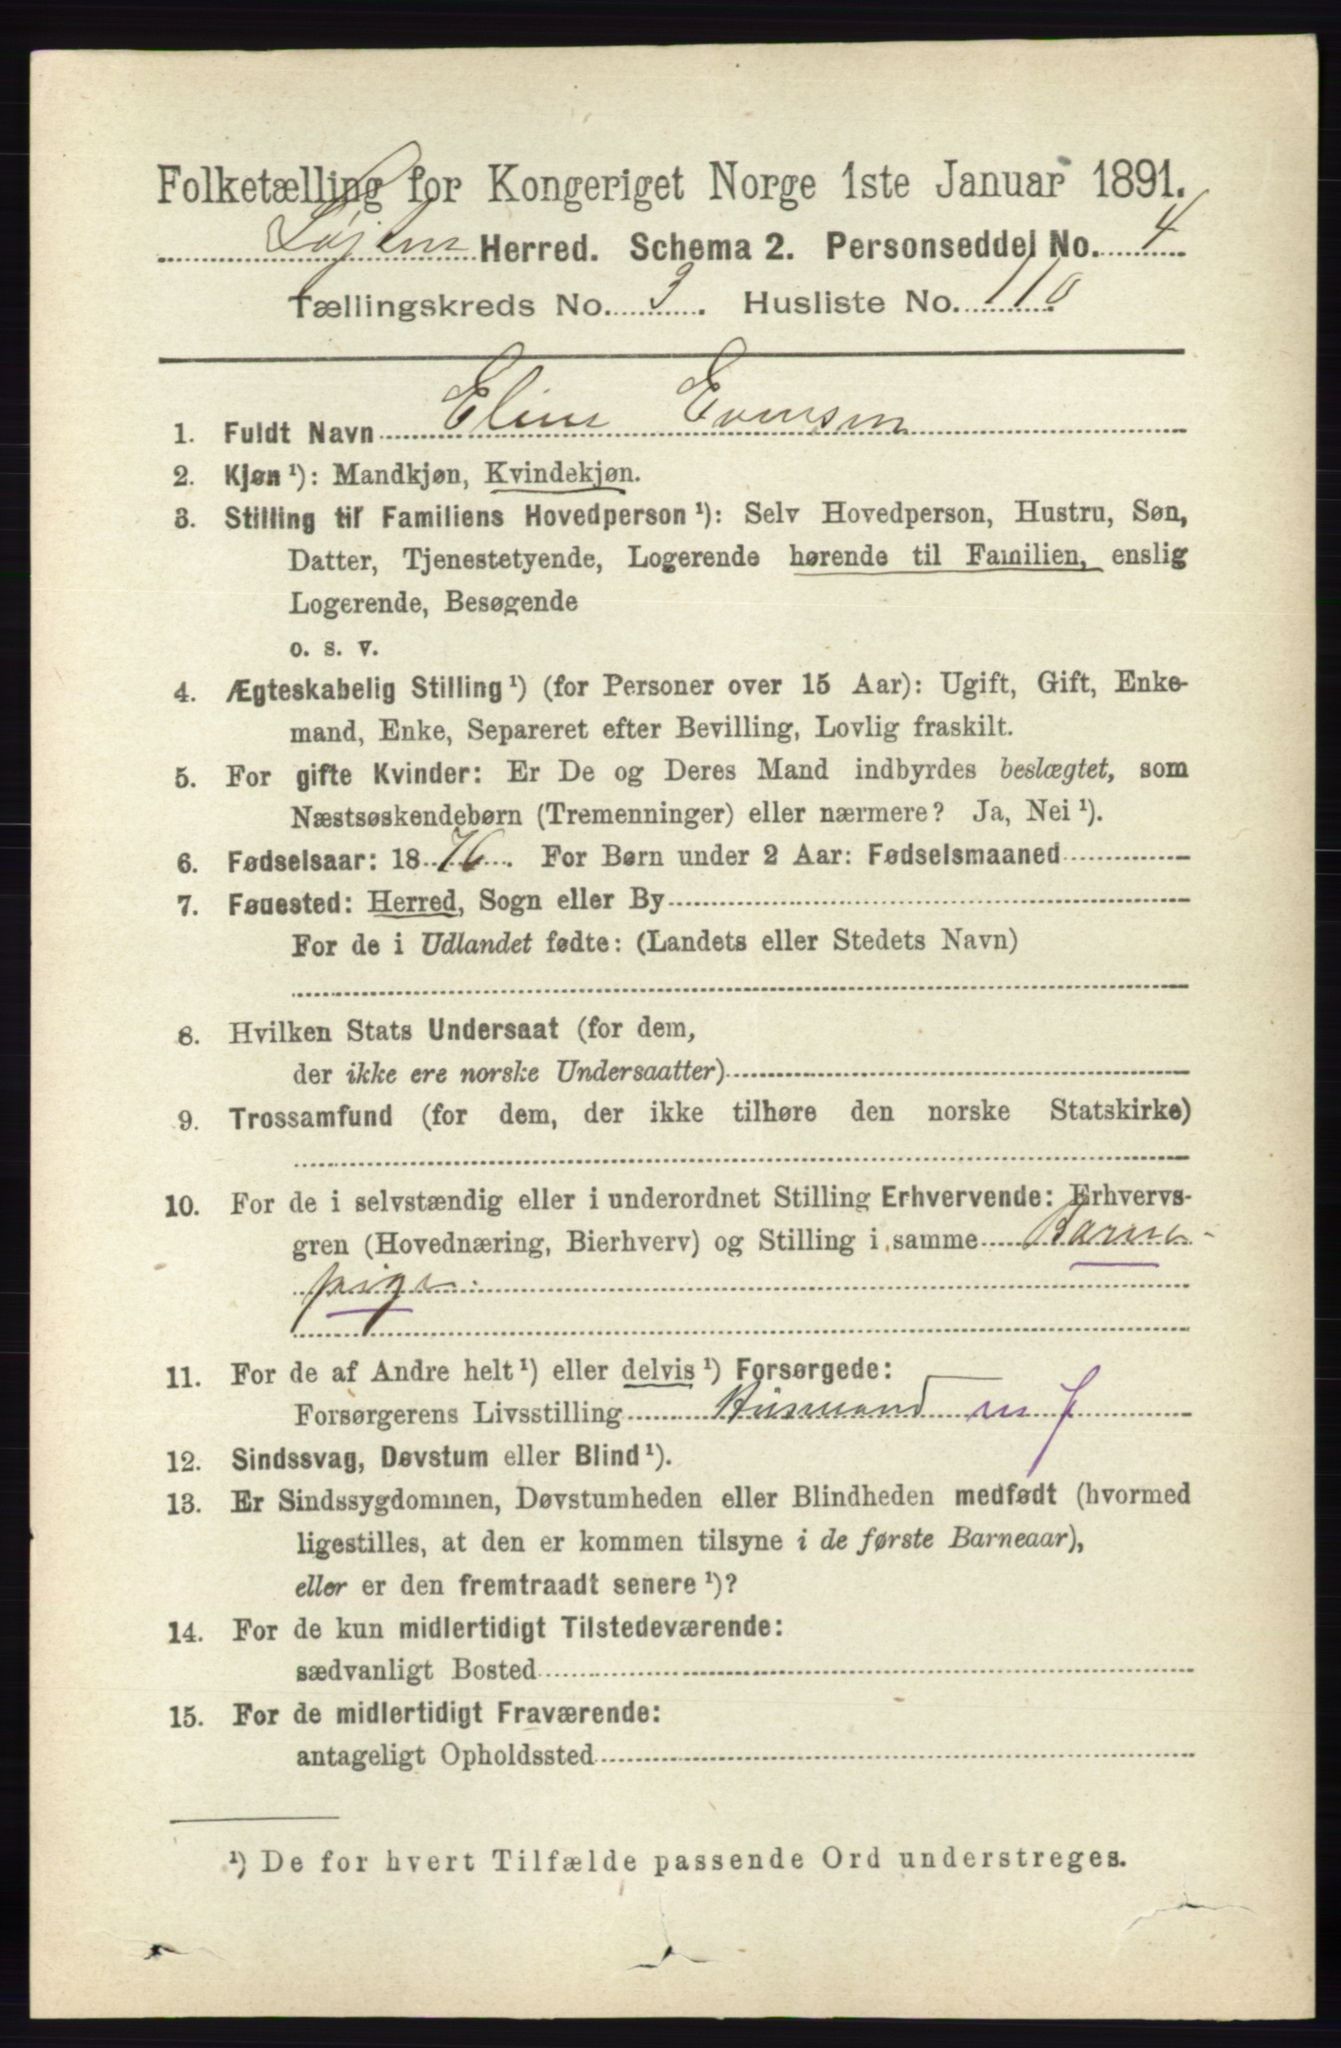 Folketælling for Kongeriget Norge 1ste Januar 1891.
Løjten Herred. Schema 2. Personseddel No. 4
Tællingskreds No. 3. Husliste No. 110
1. Fuldt Navn Eline Evensen
2. Kjøn ¹): Mandkjøn, Kvindekjøn.
3. Stilling til Familiens Hovedperson ¹): Selv Hovedperson, Hustru, Søn,
Datter, Tjenestetyende, Logerende hørende til Familien, enslig
Logerende, Besøgende
o. s. v.
4. Ægteskabelig Stilling ¹) (for Personer over 15 Aar): Ugift, Gift, Enke-
mand, Enke, Separeret efter Bevilling, Lovlig fraskilt.
5. For gifte Kvinder: Er De og Deres Mand indbyrdes beslægtet, som
Næstsøskendebørn (Tremenninger) eller nærmere? Ja, Nei ¹).
6. Fødselsaar: 1876. For Børn under 2 Aar: Fødselsmaaned
7. Fødested: Herred, Sogn eller By
For de i Udlandet fødte: (Landets eller Stedets Navn)
8. Hvilken Stats Undersaat (for dem,
der ikke ere norske Undersaatter)
9. Trossamfund (for dem, der ikke tilhøre den norske Statskirke)
10. For de i selvstændig eller i underordnet Stilling Erhvervende: Erhvervs-
gren (Hovednæring, Bierhverv) og Stilling i samme Barne-
pige
11. For de af Andre helt ¹) eller delvis ¹) Forsørgede:
Forsørgerens Livsstilling Husmand m J
12. Sindssvag, Døvstum eller Blind ¹).
13. Er Sindssygdommen, Døvstumheden eller Blindheden medfødt (hvormed
ligestilles, at den er kommen tilsyne i de første Barneaar),
eller er den fremtraadt senere ¹)?
14. For de kun midlertidigt Tilstedeværende:
sædvanligt Bosted
15. For de midlertidigt Fraværende:
antageligt Opholdssted
¹) De for hvert Tilfælde passende Ord understreges.